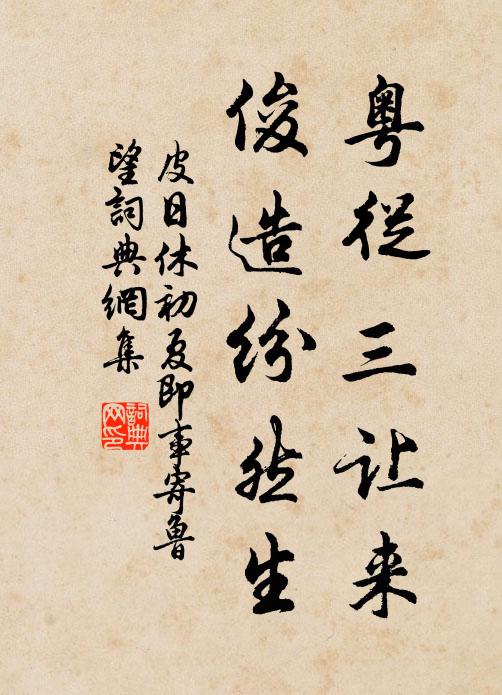 粤從三让来
俊造纷然生
皮日休初夏即事寄魯
望詞典網集
詞典
网印